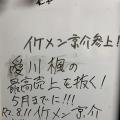 イケメン京介参上!
愛川楓の
最高売上を抜く!
5月までに!!!
R2.8.11 イケメン京介